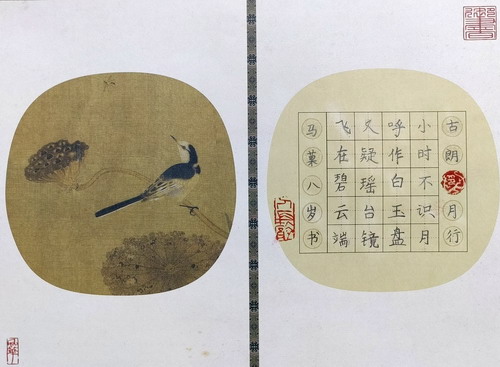 古朗月行
小时不识月
呼作白玉盘
又疑瑶台镜
飞在碧云端
马菓八岁书